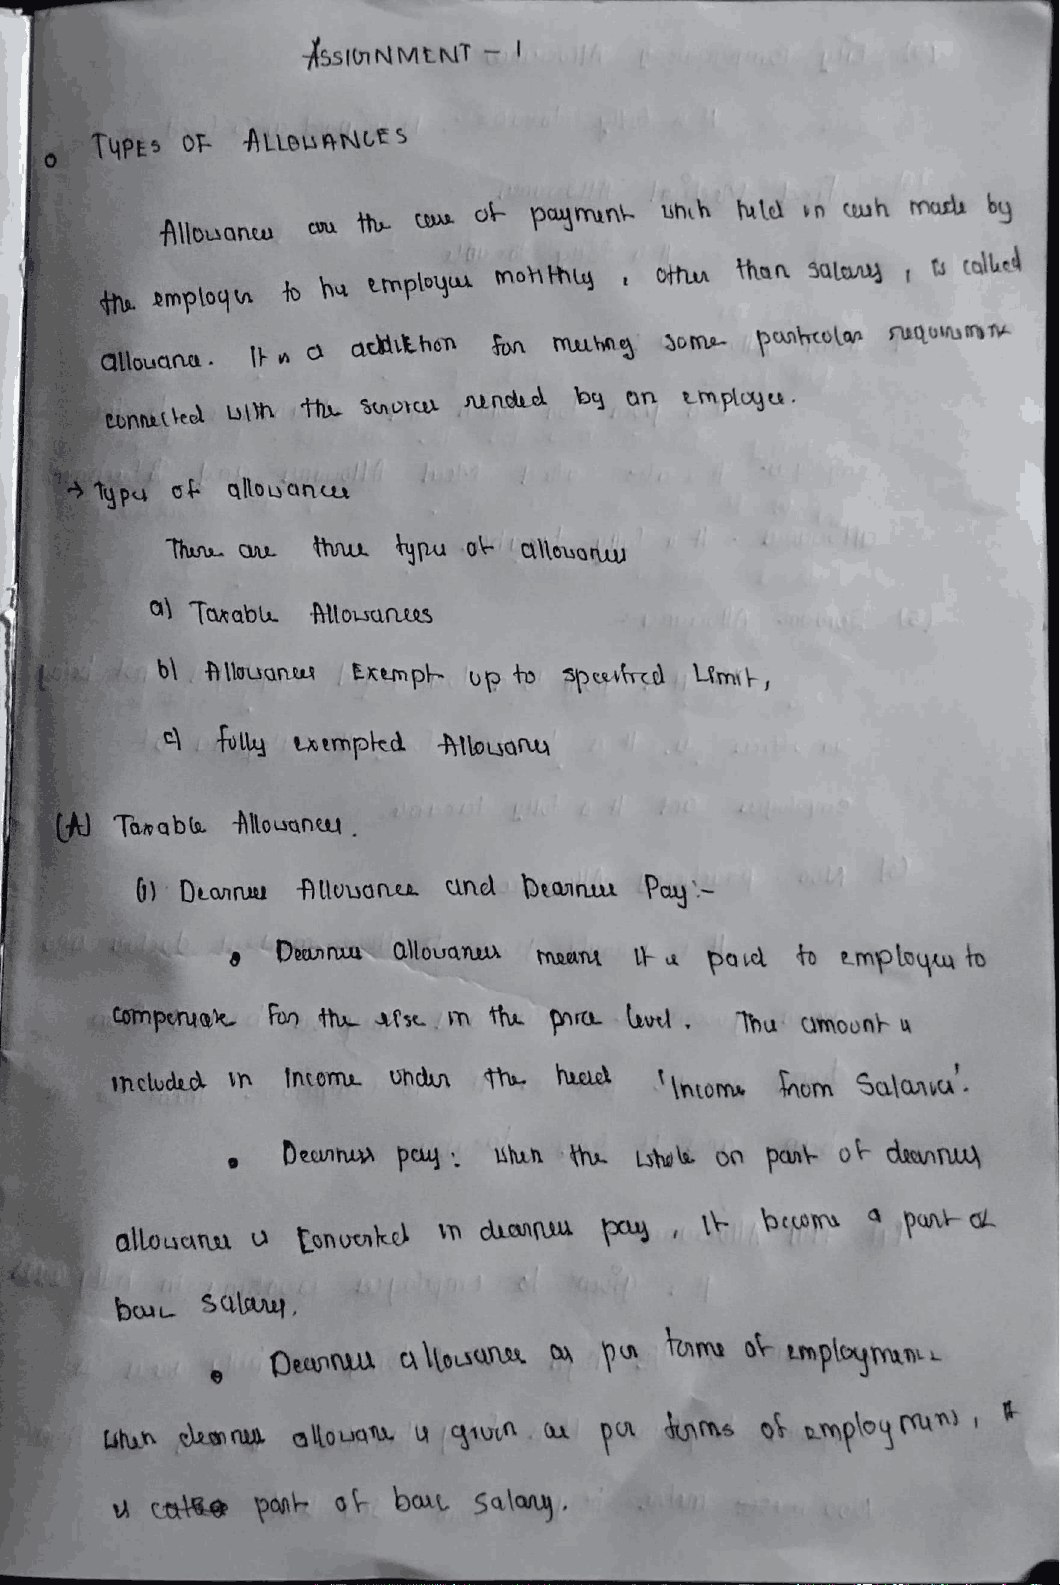 ASSIGNMENT - 1
TYPES OF ALLOWANCES
Allowances are the case of payment which held in cash made by
the employer to he employees motithly, other than salary, is called
allowance. It is a addition for meeting some particolar requirements
connected with the services rended by an employee.
→ Types of allowances
There are three types of allowances
a) Taxable Allowances
b) Allowances Exempt up to specified Limit,
c) fully exempted Allowances
(A) Taxable Allowances.
(i) Dearness Allowance and Dearness Pay:-
• Dearness allowances means it is paid to employees to
compensate for the rise in the price level. This amount is
included in Income under the head 'Income from Salaries'.
• Dearness pay: when the whole or part of dearness
allowance is converted in dearness pay, it become a part of
basic salary.
• Dearness allowance as per terms of employment
when dearness allowance is given as per terms of employment, it
is part of basic salary.